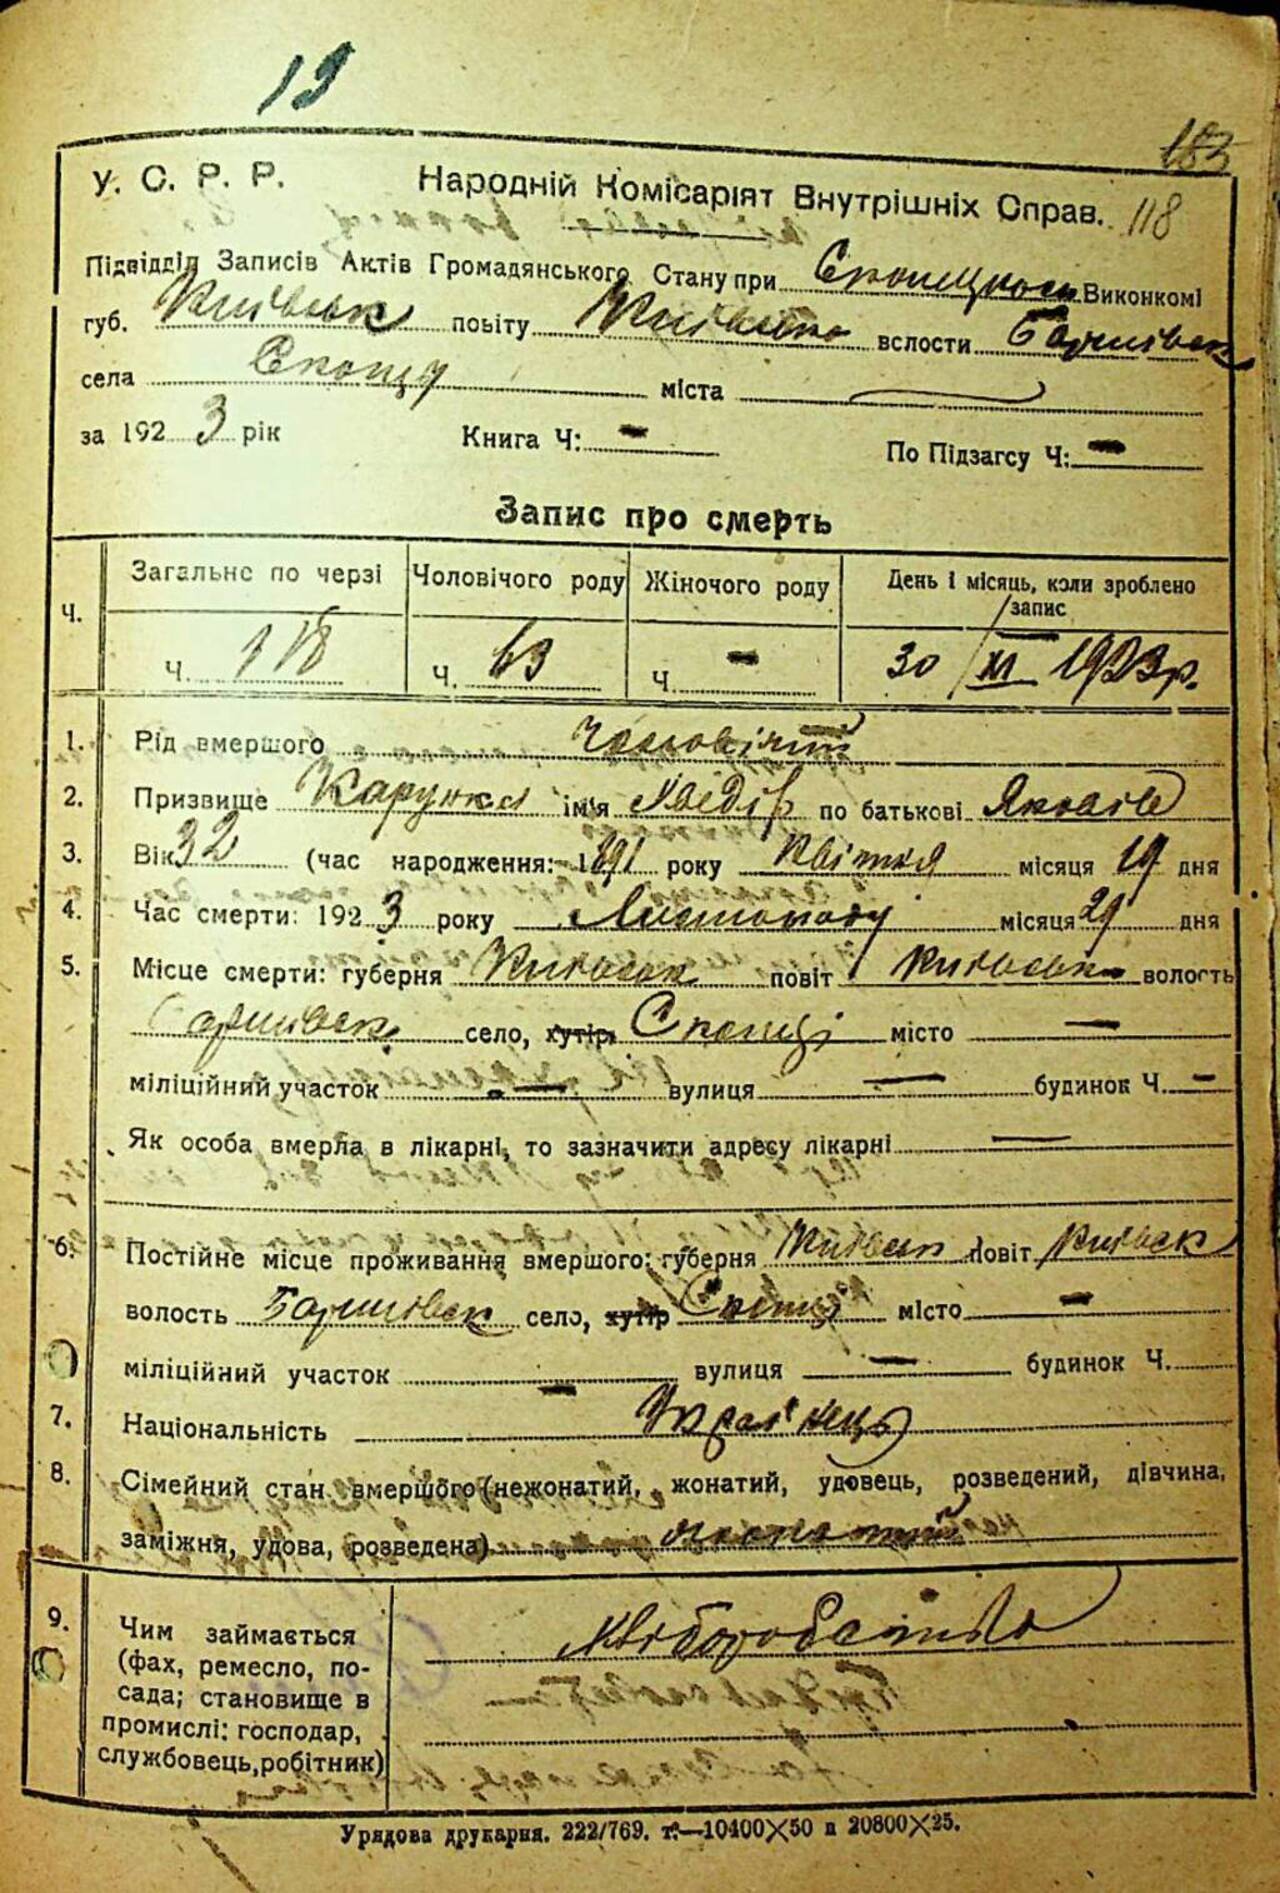 19
183
У. С. Р. Р. Народній Комісаріят Внутрішніх Справ. 118
Підвідділ Записів Актів Громадянського Стану при Виконкомі
губ. Київськ повіту Київсько волости Баришівськ
села Скопці міста
за 192 3 рік Книга Ч: — По Підзагсу Ч: —
Запис про смерть
Ч. Загальне по черзі Чоловічого роду Жіночого роду День і місяць, коли зроблено запис
Ч. 118 Ч. 63 Ч. — 30/XI 1923р.
1. Рід вмершого Чоловічий
2. Призвище ім'я Хведір по батькові Яковів
3. Вік 32 (час народження: 1891 року Квітня місяця 19 дня
4. Час смерти: 192 3 року Листопаду місяця 29 дня
5. Місце смерти: губерня Київськ повіт Київськ волость
Баришівськ село, хутір Скопці місто —
міліційний участок — вулиця — будинок Ч. —
Як особа вмерла в лікарні, то зазначити адресу лікарні —
6. Постійне місце проживання вмершого: губерня Київськ повіт Київськ
волость Баришівськ село, хутір Скопці місто —
міліційний участок — вулиця — будинок Ч.
7. Національність Украінець
8. Сімейний стан вмершого (нежонатий, жонатий, удовець, розведений, дівчина,
заміжня, удова, розведена) жонатий
9. Чим займається Хліборобство
(фах, ремесло, по-
сада; становище в
промислі: господар,
службовець, робітник)
Урядова друкарня. 222/769. т.—10400×50 п 20800×25.